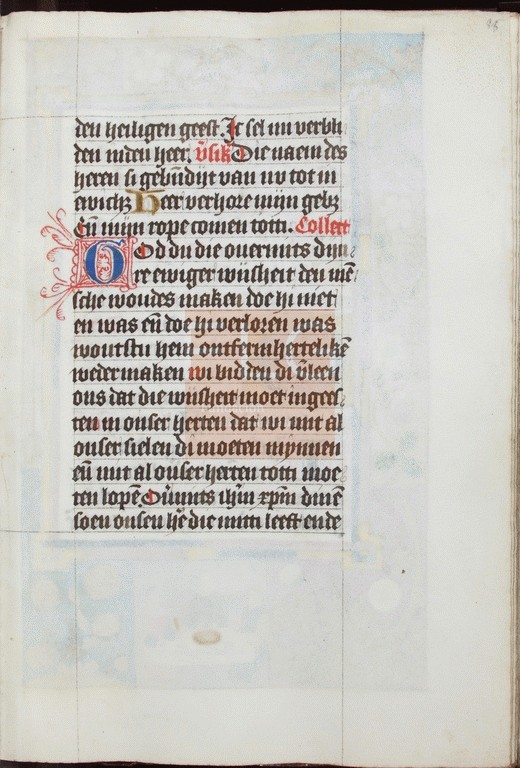 den heiligen geest. Ic sel mi verbli
den inden heer. v̄sik Die naem des
heren si gebn̄dijt van nv tot in
ewich; Heer verhore mijn geb;
En̄ mijn rope comen toti. Collect
God du die ouermits dijn
re ewiger wijsheit den mē
sche woudes maken doe hi niet
en was en̄ doe hi verloren was
woutstu hem ontfermherteliken̄
weder maken wi bidden di v̄leen
ons dat die wijsheit moet ingees
ten in onser herten dat wi mit al
onser sielen di moeten mynnen
en̄ mit al onser herten toti moe
ten lopē. Ou̅mits ih̄m xp̄m dinē
soen onsen hē die mitti leeft ende